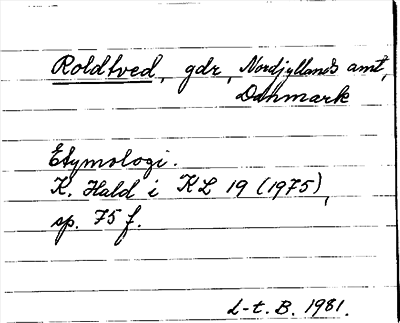 Roldtved, gdr, Nordjyllands amt,
Danmark
Etymologi.
K. Hald i KL 19 (1975),
sp. 75 f.
L-t. B. 1981.